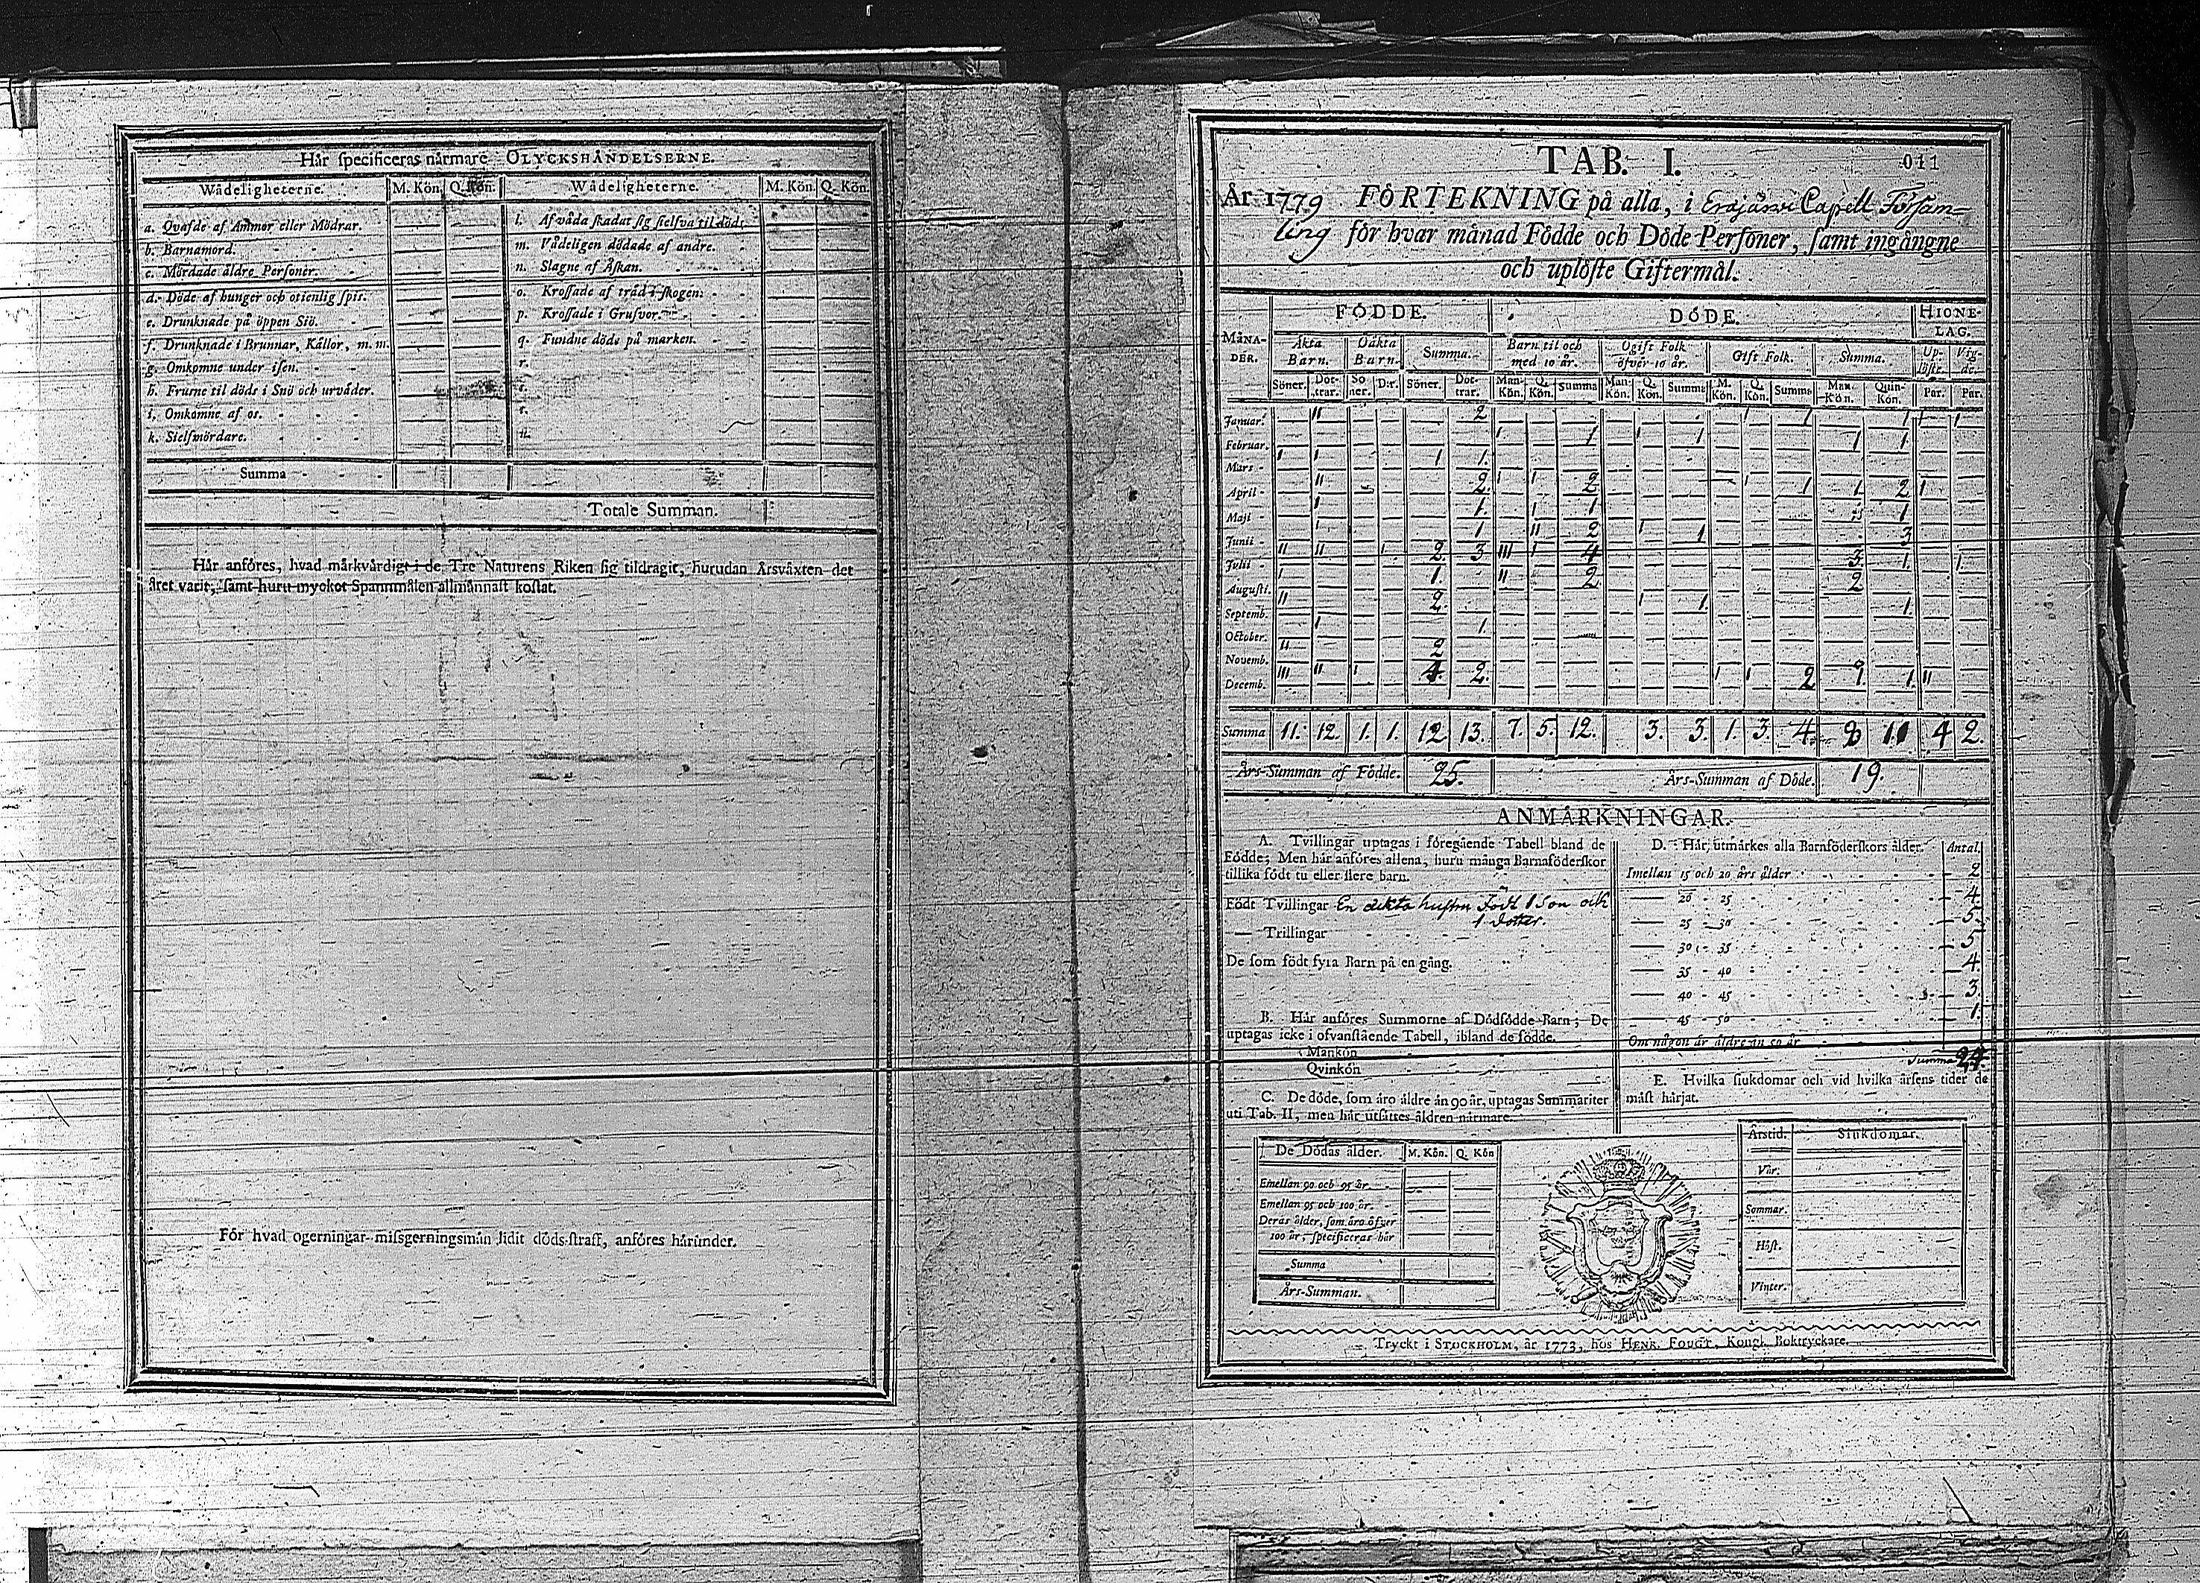 Hår specificeras nårmare OLYCKSHÅNDELSERNE.
Wådeligheterne. M. Kön. Q. Kön. Wådeligheterne. M. Kön. Q. Kön.
a. Qvafde af Ammor eller Mödrar. l. Af våda skadat sig sielfva til döds.
b. Barnamord. m. Vådeligen dödade af andre.
c. Mördade åldre Personer. n. Slagne af Åskan.
d. Döde af hunger och otienlig spis. o. Krossade af tråd i skogen.
e. Drunknade på öppen Siö. p. Krossade i Grufvor.
f. Drunknade i Brunnar, Kållor, m. m. q. Fundne döde på marken.
g. Omkomne under isen. r.
h. Frusne til döds i Snö och urvåder. s.
i. Omkomne af os. t.
k. Sielfmördare. u.
Summa
Totale Summan.
Hår anföres, hvad mårkvårdigt i de Tre Naturens Riken sig tildragit, hurudan Årsvåxten det
året varit, samt huru mycket Spannmålen allmånnast kostat.
För hvad ogerningar missgerningsmån lidit döds-straff, anföres hårunder.
TAB. I. 011
År 1779 FÖRTEKNING på alla, i Erajärvi Capell Församling
för hvar månad Födde och Döde Personer, samt ingångne
och uplöste Giftermål.
MÅNADER. FÖDDE. DÖDE. HIONELAG.
Åkta Barn. Oåkta Barn. Summa. Barn til och med 10 år. Ogift Folk öfver 10 år. Gift Folk. Summa. Uplöste. Vigde.
Söner. Dottrar. Soner. D:r. Söner. Dottrar. Mankön. Q. Kön. Summa Mankön. Q. Kön. Summa M. Kön. Q. Kön. Summa Mankön. Quinkön. Par. Par.
Januar. II 2 1 1 1 1 1
Februar. 1 1 1 1 1 1
Mars 1 1 1 1.
April II 2. 1 1 2 1 1 1. 2 1
Maji 1 1. 1 1 1
Junii 1 1 II 2 1 1 3
Julii II II 1 2 3 III 1 4 3. 1. 1.
Augusti. 1 1. II 2 2
Septemb. II 2. 1 1. 1
October. 1 1.
Novemb. II 2
Decemb. III II 1 4. 2. 1 1 2 1. 1. II
Summa 11. 12. 1. 1. 12 13. 7. 5. 12. 3. 3. 1. 3. 4. 8 11 4 2.
Års-Summan af Födde. 25. Års-Summan af Döde. 19.
ANMÅRKNINGAR.
A. Tvillingar uptagas i föregående Tabell bland de
Födde; Men hår anföres allena, huru många Barnaföderskor
tillika födt tu eller flere barn.
Födt Tvillingar En äkta hustru Födt 1 Son och
1 dotter.
— Trillingar
De som födt fyra Barn på en gång.
B. Hår anföres Summorne af Dödfödde Barn; De
uptagas icke i ofvanstående Tabell, ibland de födde.
Mankön
Qvinkön
C. De döde, som åro åldre ån 90 år, uptagas Summariter
uti Tab. II, men hår utsåttes åldren nårmare.
De Dödas ålder. M. Kön. Q. Kön
Emellan 90 och 95 år
Emellan 95 och 100 år.
Deras ålder, som åro öfver
100 år, specificeras hår
Summa
Års-Summan.
D. Hår utmårkes alla Barnföderskors ålder. Antal.
Imellan 15 och 20 års ålder 2
— 20 - 25 4.
— 25 - 30 5.
— 30 - 35 5
— 35 - 40 4.
— 40 - 45 3.
— 45 - 50 1.
Om någon år åldre ån 50 år
Summa 24.
E. Hvilka siukdomar och vid hvilka årsens tider de
måst hårjat.
Årstid. Siukdomar.
Vår.
Sommar.
Höst.
Vinter.
Tryckt i STOCKHOLM, år 1773, hos HENR. FOUGT, Kongl. Boktryckare.